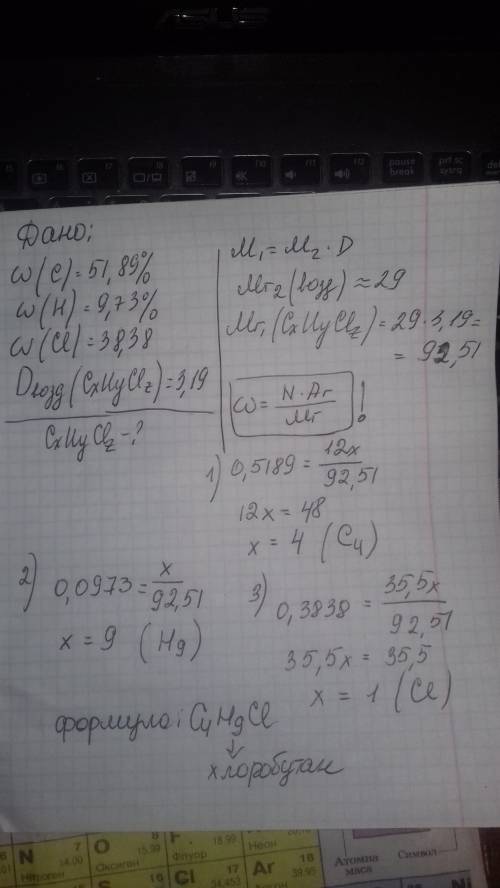 ASUS
pause break
prt sc sysrq
Дано:
ω(C)=51,89%
ω(H)=9,73%
ω(Cl)=38,38
Dвозд(CxHyClz)=3,19
CxHyClz-?
M₁=M₂·D
Mr₂(возд)≈29
Mr₁(CxHyClz)=29·3,19=
=92,51
ω=N·Ar/Mr !
1) 0,5189=12x/92,51
12x=48
x=4 (C₄)
2) 0,0973=x/92,51
x=9 (H₉)
3) 0,3838=35,5x/92,51
35,5x=35,5
x=1 (Cl)
формула: C₄H₉Cl
↓
хлоробутан
N 7 14.00
Нітроген
O 8 15.99
Оксиген
F 18.99
Флуор
Неон
S 16
Cl 17
34.453
Ar 18
39.95
Атомна маса
Символ
Ni